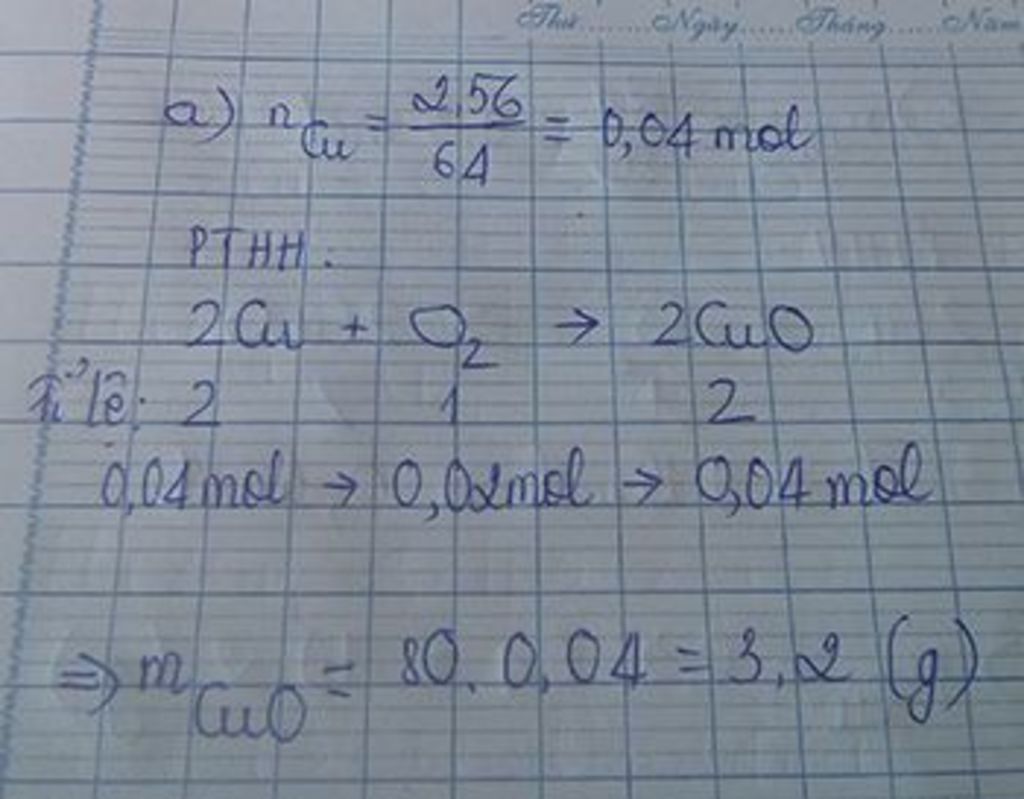 Thứ......... Ngày...... Tháng...... Năm
a) n Cu = 2,56 / 64 = 0,04 mol
PTHH :
2Cu + O2 → 2CuO
Tỉ lệ: 2 1 2
0,04 mol → 0,02 mol → 0,04 mol
⇒ m CuO = 80. 0,04 = 3,2 (g)